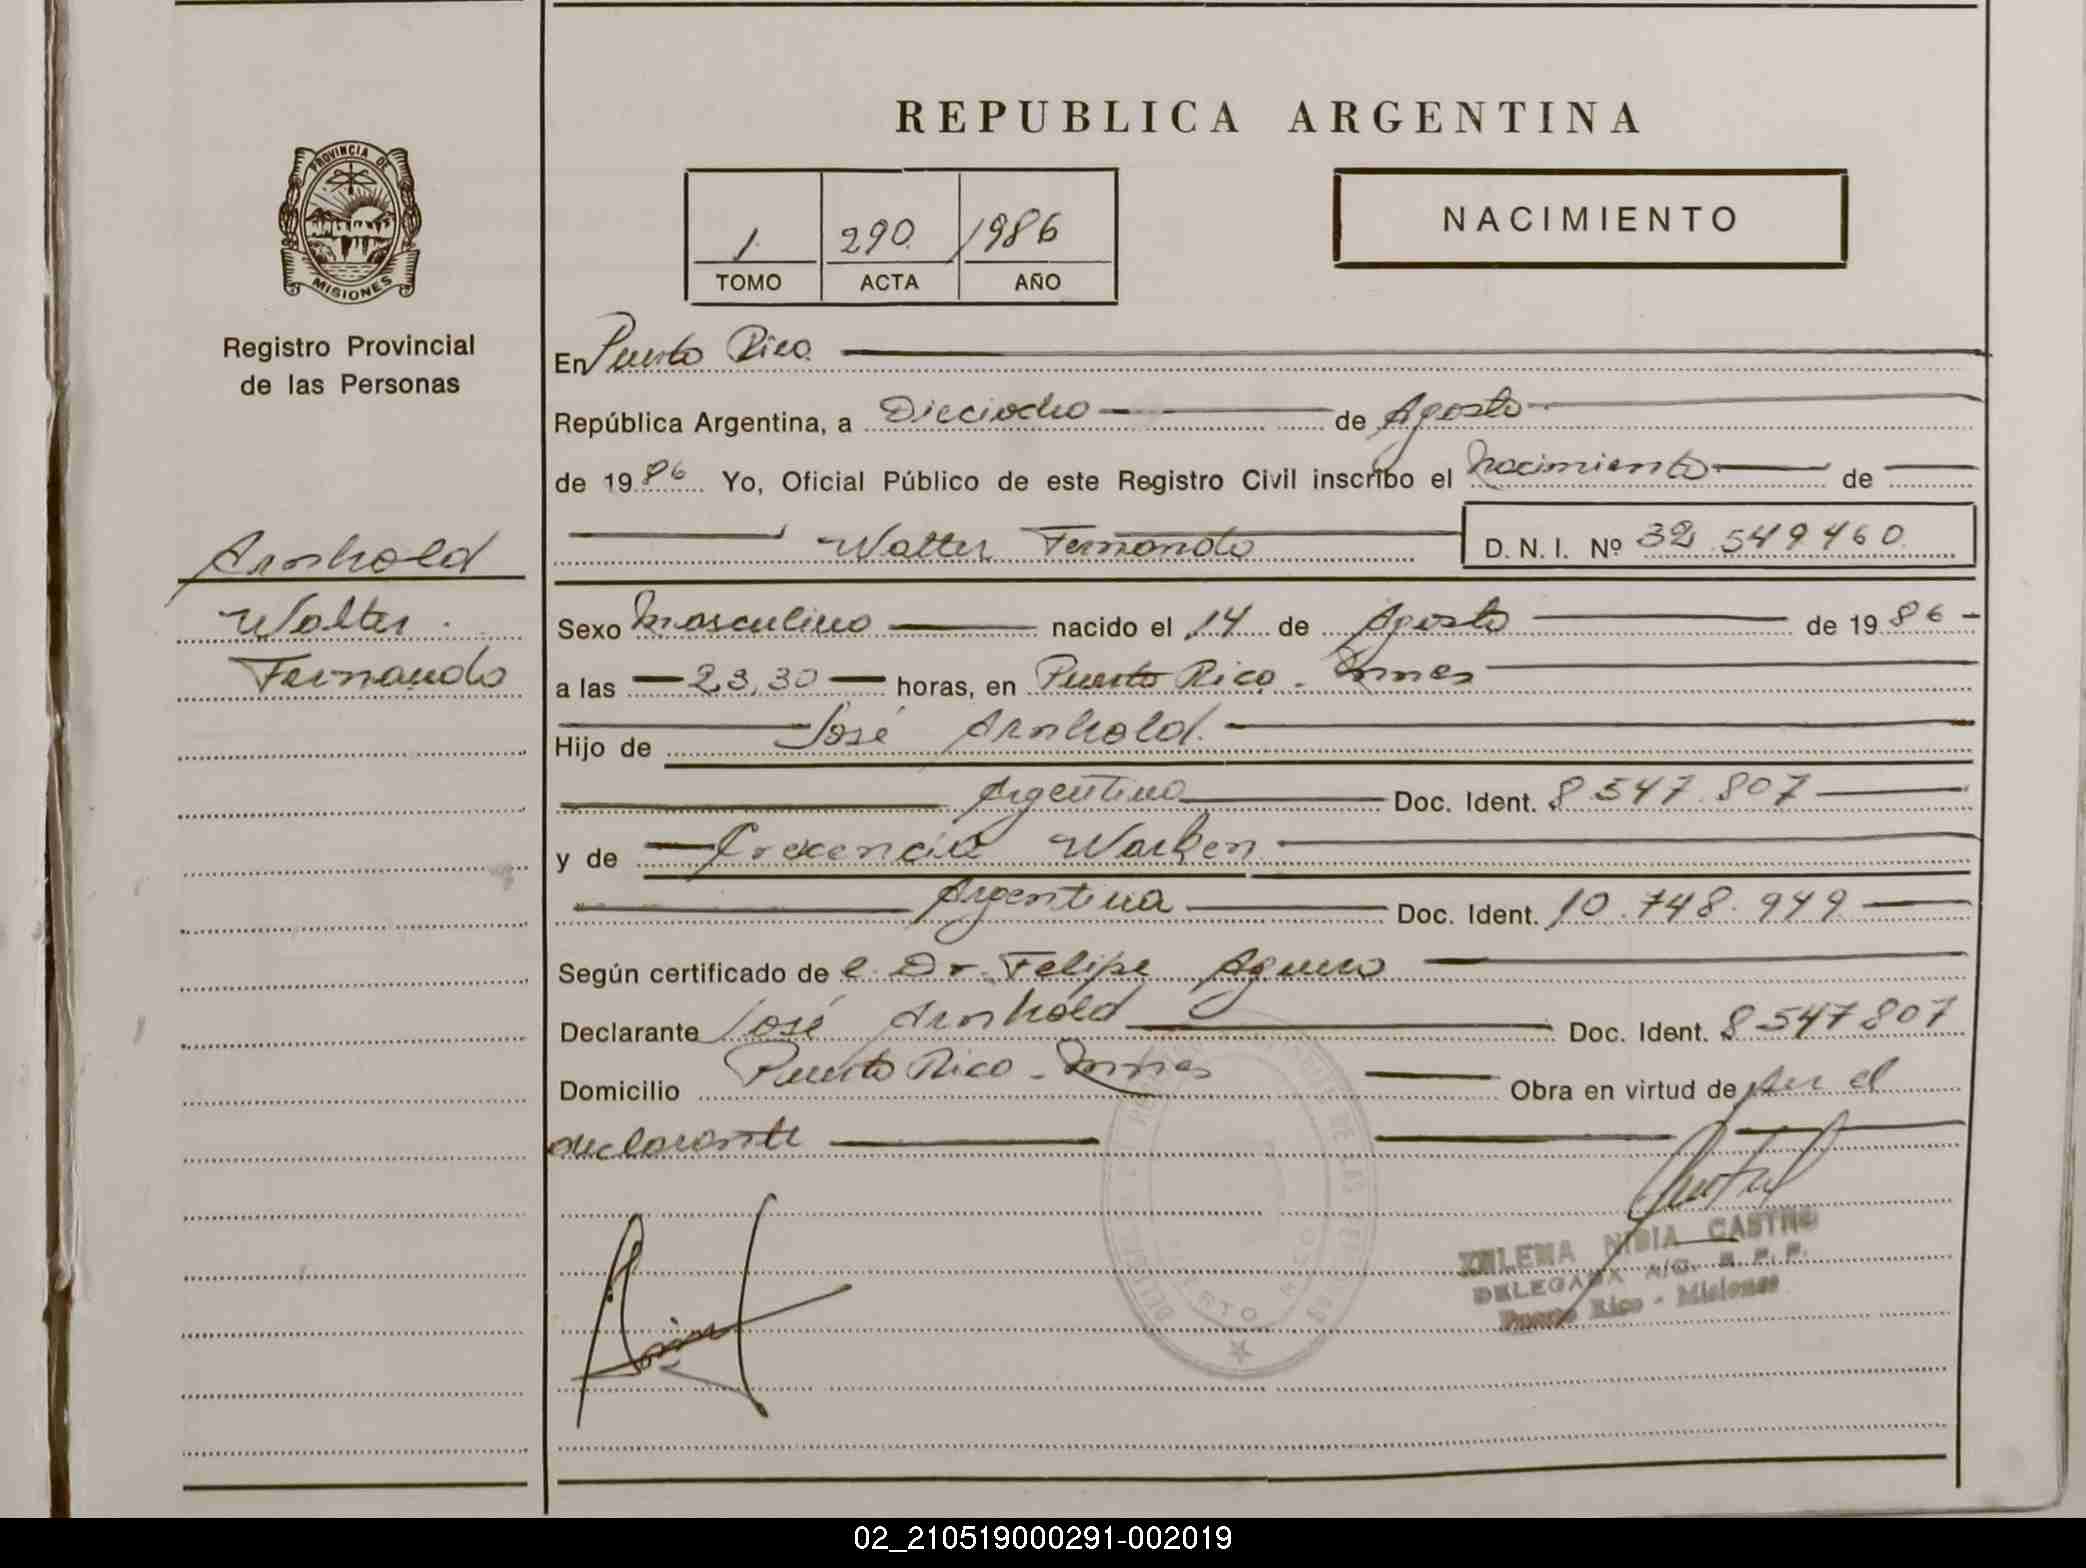 REPUBLICA ARGENTINA
PROVINCIA DE
MISIONES
Registro Provincial
de las Personas
1 290 1986
TOMO ACTA AÑO
NACIMIENTO
En Puerto Rico
República Argentina, a Dieciocho de Agosto
de 1986 Yo, Oficial Público de este Registro Civil inscribo el Nacimiento de
Walter Fernando D. N. I. Nº 32 549460
Arnhold
Walter
Fernando
Sexo Masculino nacido el 14 de Agosto de 1986
a las 23,30 horas, en Puerto Rico - Mnes
Hijo de José Arnhold
Argentino Doc. Ident. 8.547.807
y de Crecencia Warken
Argentina Doc. Ident. 10.748.949
Según certificado de e. Dr. Felipe Aguero
Declarante José Arnhold Doc. Ident. 8547807
Domicilio Puerto Rico - Mnes Obra en virtud de ser el
declarante
NIDIA CASTRO
DELEGADA A/C. R. P. P.
Puerto Rico - Misiones
02_210519000291-002019